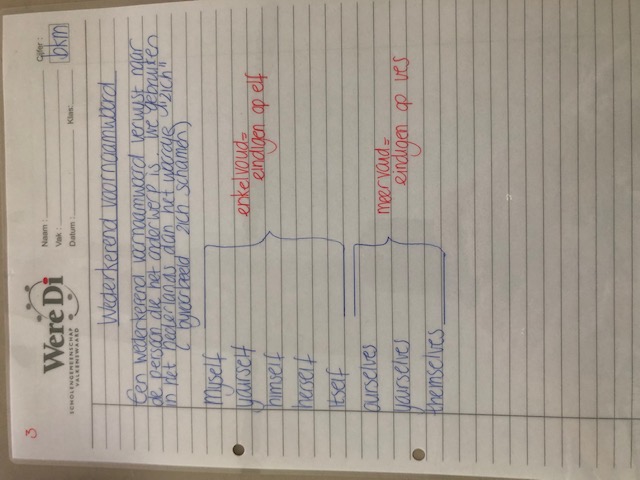 3
Were Di
SCHOLENGEMEENSCHAP
VALKENSWAARD
Naam :
Vak :
Datum :
Klas:
Cijfer :
bkm
Wederkerend voornaamwoord
Een wederkerend voornaamwoord verwijst naar
de persoon die het onderwerp is. We gebruiken
in het nederlands dan het woordje "zich"
( bijvoorbeeld zich schamen)
myself
yourself
himself
herself
itself
enkelvoud=
eindigen op elf
ourselves
yourselves
themselves
meervoud=
eindigen op ves